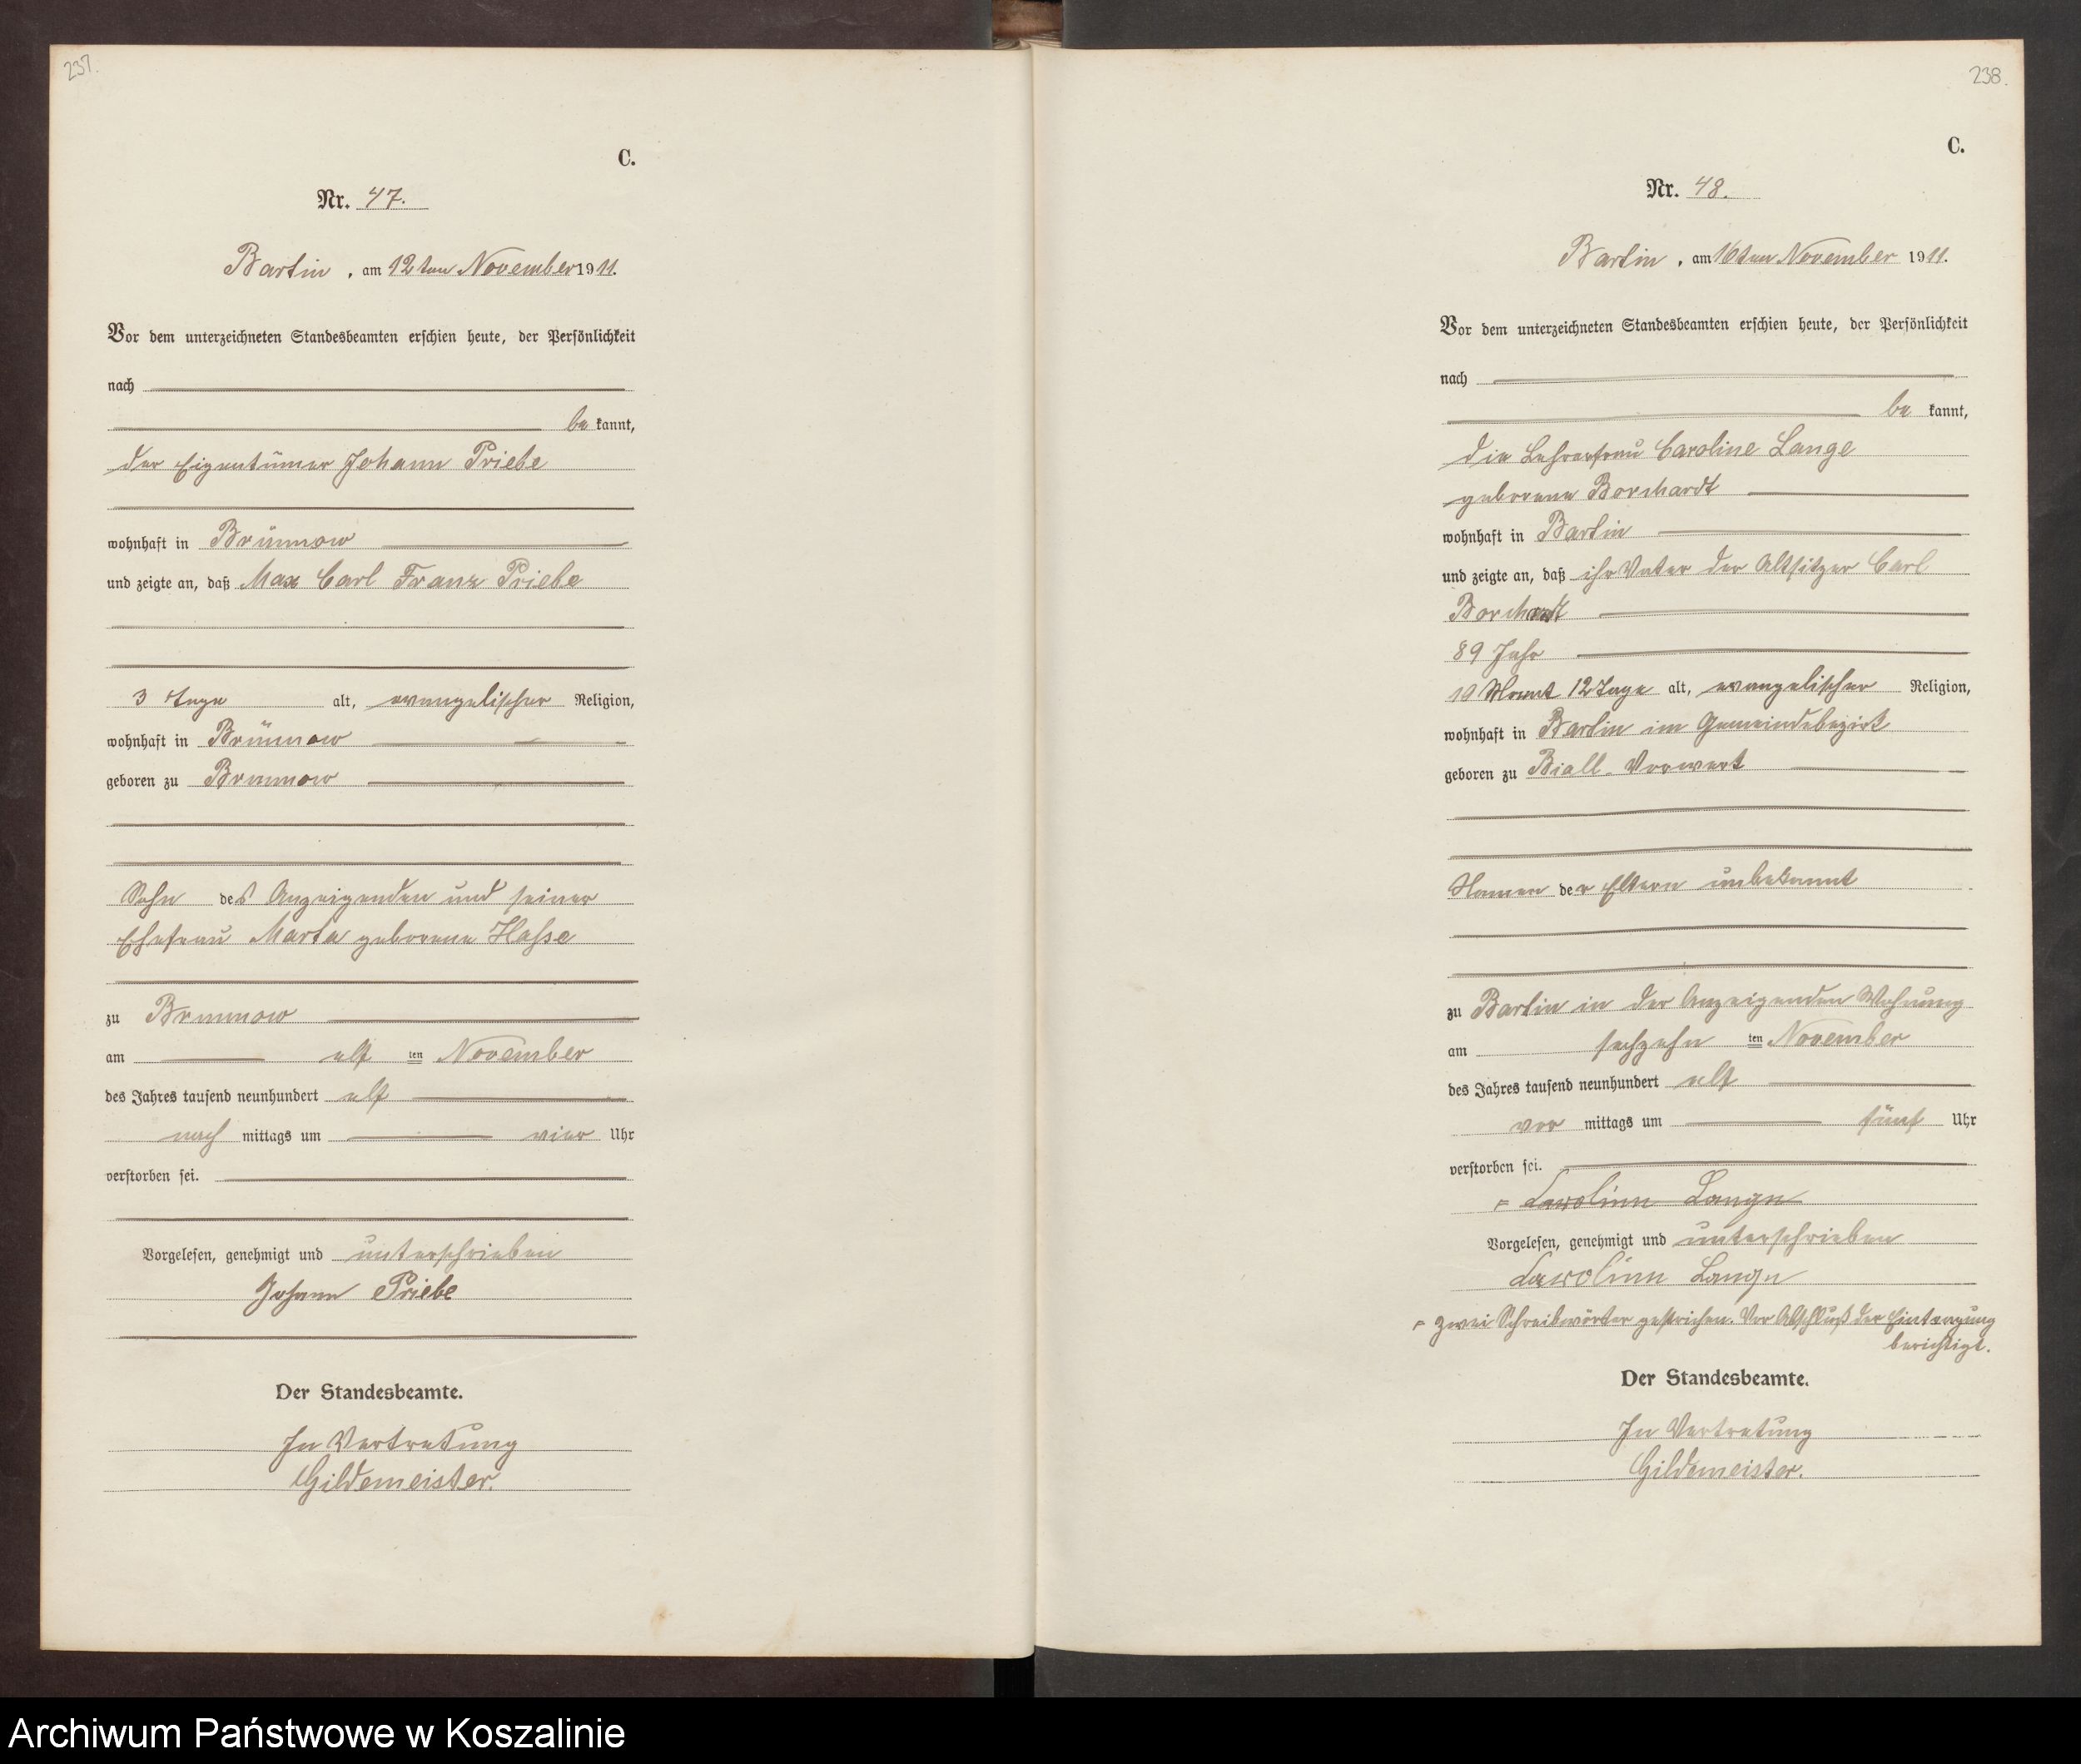 237.
C.
Nr. 47.
Bartin, am 12ten November 1911.
Vor dem unterzeichneten Standesbeamten erschien heute, der Persönlichkeit
nach
be kannt,
der Eigentümer Johann Priebe
wohnhaft in Brünnow
und zeigte an, daß Max Carl Franz Priebe
3 Tage alt, evangelischer Religion,
wohnhaft in Brünnow
geboren zu Brünnow
Sohn des Anzeigenden und seiner
Ehefrau Marta geborene Hasse
zu Brünnow
am elf ten November
des Jahres tausend neunhundert elf
nach mittags um vier Uhr
verstorben sei.
Vorgelesen, genehmigt und unterschrieben
Johann Priebe
Der Standesbeamte.
In Vertretung
Gildemeister.
238.
C.
Nr. 48.
Bartin, am 16ten November 1911.
Vor dem unterzeichneten Standesbeamten erschien heute, der Persönlichkeit
nach
be kannt,
die Lehrerfrau Caroline Lange
geborene Borchardt
wohnhaft in Bartin
und zeigte an, daß ihr Vater der Altsitzer Carl
Borchardt
89 Jahr
10 Monat 12 Tage alt, evangelischer Religion,
wohnhaft in Bartin im Gemeindebezirk
geboren zu Biall. Vorwerk
Namen der Eltern unbekannt
zu Bartin in der Anzeigenden Wohnung
am sechzehn ten November
des Jahres tausend neunhundert elf
vor mittags um fünf Uhr
verstorben sei.
Caroline Lange
Vorgelesen, genehmigt und unterschrieben
Caroline Lange
zwei Schreibwörter gestrichen. Vor Abschluß der Eintragung
berichtigt.
Der Standesbeamte.
In Vertretung
Gildemeister.
Archiwum Państwowe w Koszalinie